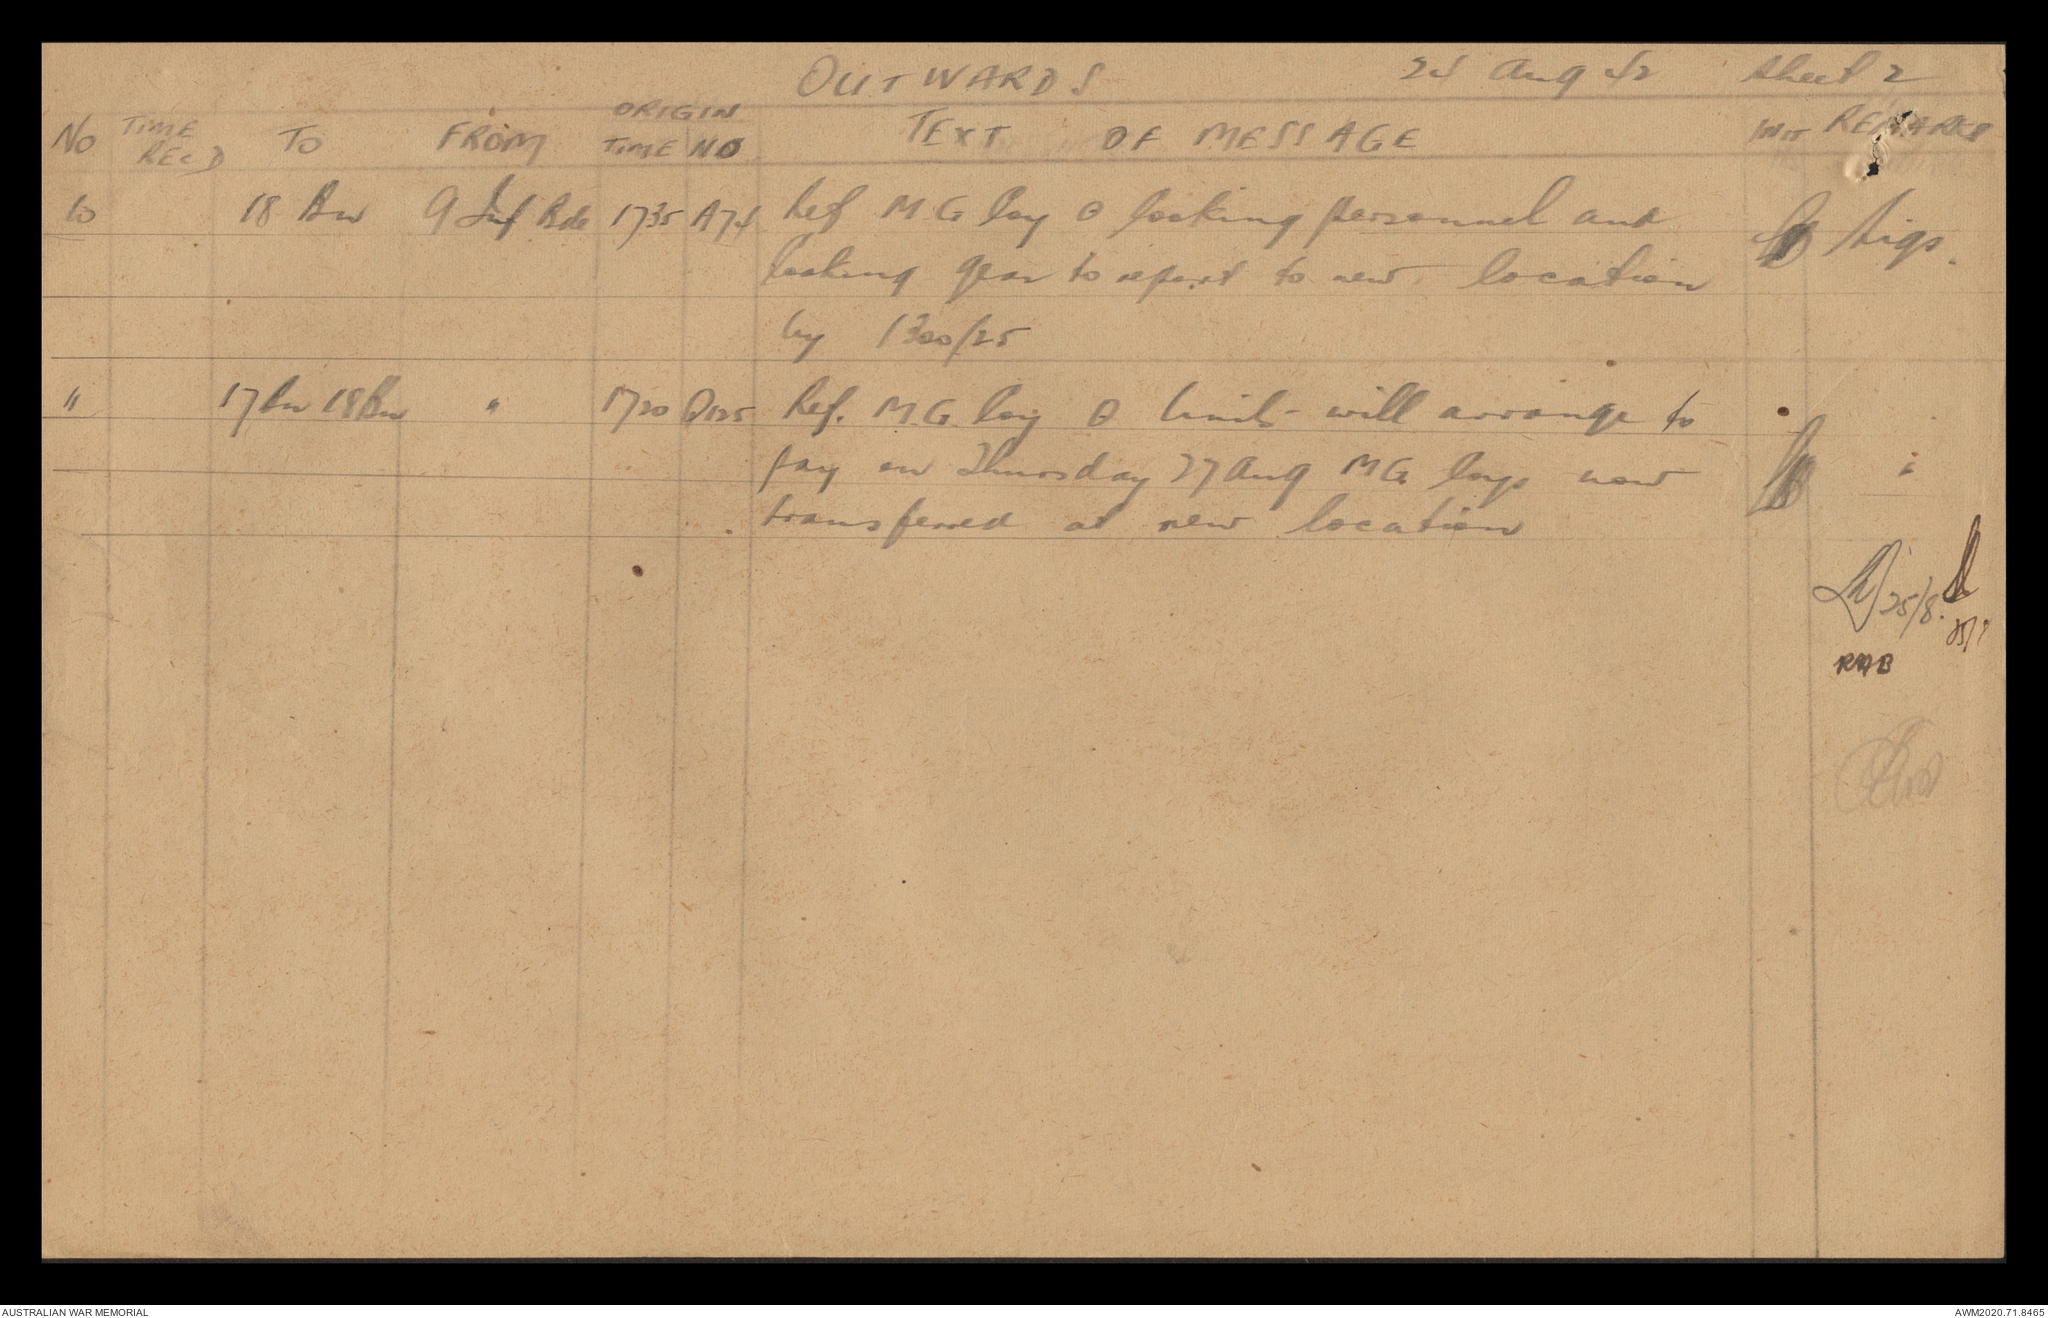 OUTWARDS 24 Aug 42 Sheet 2
No TIME RECD TO FROM ORIGIN TIME NO TEXT OF MESSAGE INIT REMARKS
10 18 Bn 9 Inf Bde 1735 A74 Ref MG Coy O Cooking personnel and Sigs.
Cooking gear to report to new location
by 1300/25
" 17 Bn 18 Bn " 1720 Q125 Ref. M.G. Coy O Units will arrange to
pay on Thursday 27 Aug MG Coys now "
transferred at new location
25/8.
25/8
RAB
AUSTRALIAN WAR MEMORIAL AWM2020.71.8465